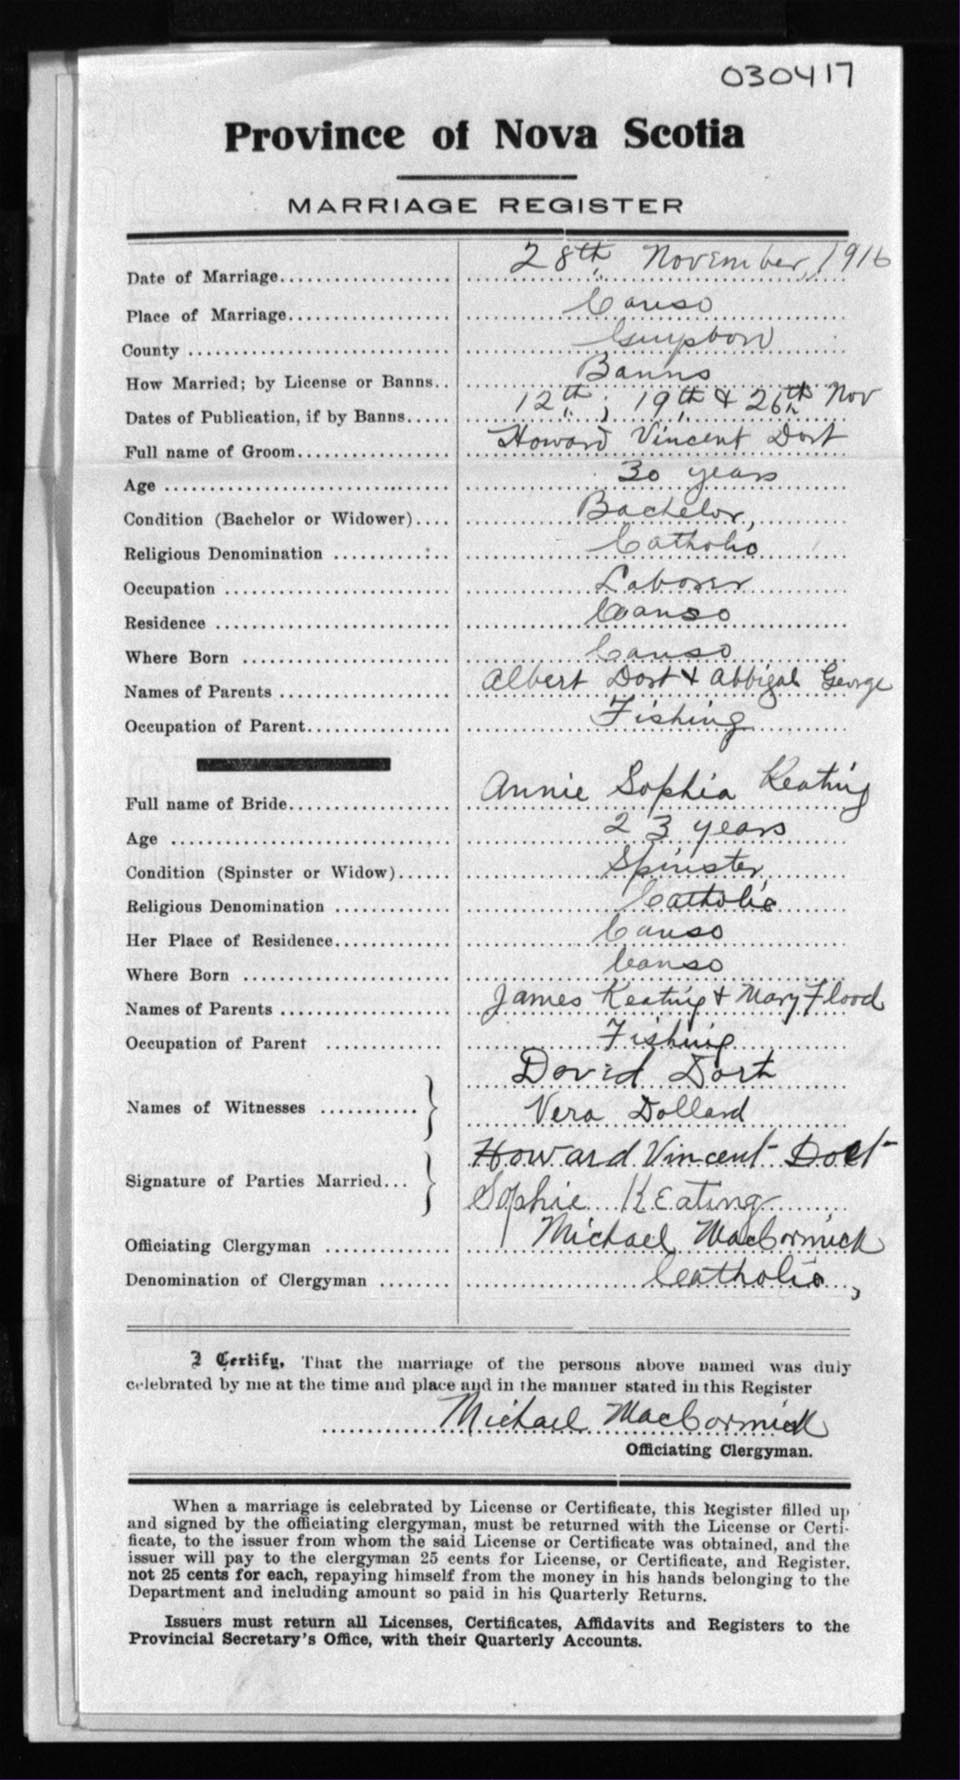 030417
Province of Nova Scotia
MARRIAGE REGISTER
Date of Marriage 28th November, 1916
Place of Marriage Canso
County Guysboro
How Married; by License or Banns Banns
Dates of Publication, if by Banns 12th, 19th & 26th Nov
Full name of Groom Howard Vincent Dort
Age 30 years
Condition (Bachelor or Widower) Bachelor,
Religious Denomination Catholic
Occupation Laborer
Residence Canso
Where Born Canso
Names of Parents Albert Dort & Abbigal George
Occupation of Parent Fishing
Full name of Bride Annie Sophia Keating
Age 23 years
Condition (Spinster or Widow) Spinster
Religious Denomination Catholic
Her Place of Residence Canso
Where Born Canso
Names of Parents James Keating & Mary Flood
Occupation of Parent Fishing
David Dort
Names of Witnesses
Vera Dollard
Howard Vincent Dort
Signature of Parties Married
Sophie Keating
Officiating Clergyman Michael MacCormick
Denomination of Clergyman Catholic,
I Certify, That the marriage of the persons above named was duly
celebrated by me at the time and place and in the manner stated in this Register
Michael MacCormick
Officiating Clergyman.
When a marriage is celebrated by License or Certificate, this Register filled up
and signed by the officiating clergyman, must be returned with the License or Certi-
ficate, to the issuer from whom the said License or Certificate was obtained, and the
issuer will pay to the clergyman 25 cents for License, or Certificate, and Register,
not 25 cents for each, repaying himself from the money in his hands belonging to the
Department and including amount so paid in his Quarterly Returns.
Issuers must return all Licenses, Certificates, Affidavits and Registers to the
Provincial Secretary's Office, with their Quarterly Accounts.